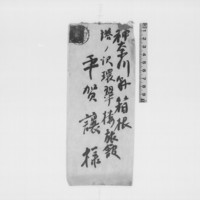 神奈川縣箱根
塔ノ沢環翠楼旅館
平賀譲様